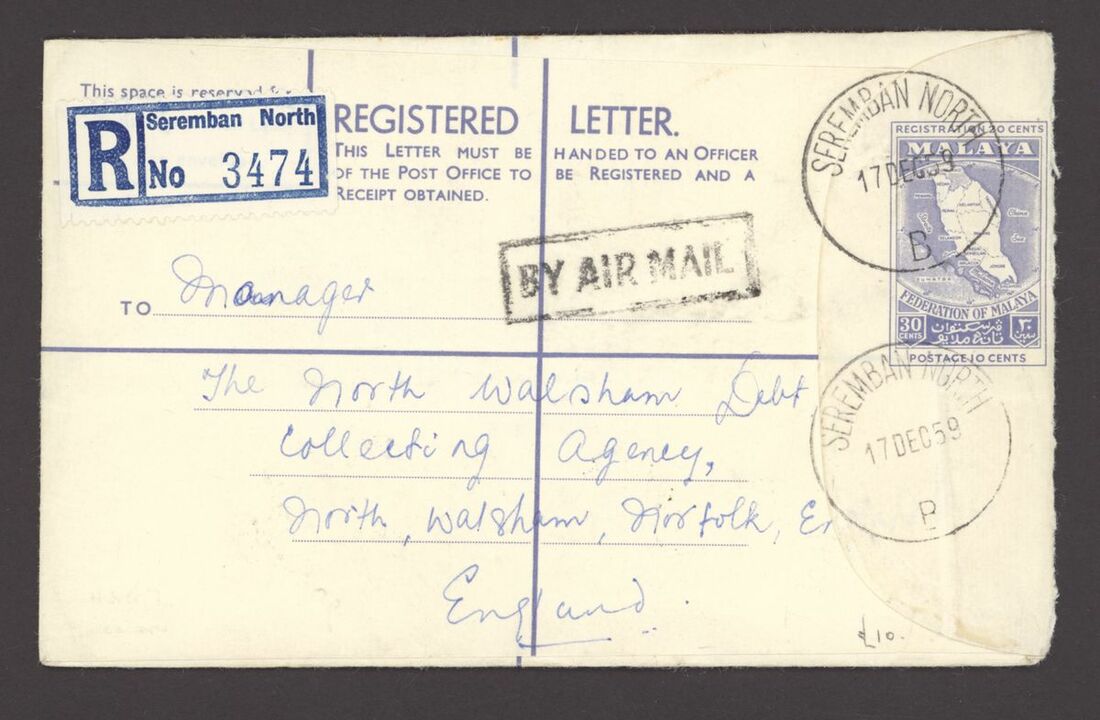 This space is reserved for
R Seremban North
No 3474
REGISTERED LETTER.
THIS LETTER MUST BE HANDED TO AN OFFICER
OF THE POST OFFICE TO BE REGISTERED AND A
RECEIPT OBTAINED.
SEREMBAN NORTH
17 DEC 59
B
REGISTRATION 20 CENTS
MALAYA
FEDERATION OF MALAYA
30 CENTS
ڤرسکتوان تانه ملايو
٣٠ سين
POSTAGE 10 CENTS
BY AIR MAIL
TO Manager
The North Walsham Debt
Collecting Agency,
North, Walsham, Norfolk, En
England.
SEREMBAN NORTH
17 DEC 59
B
£10.